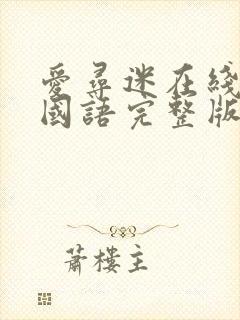 愛尋迷在綫
國語完整版
蕭樓主